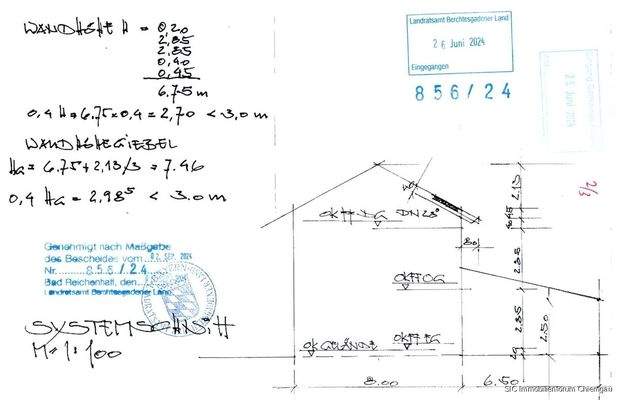 WANDHÖHE H = 0,20
2,85
2,85
0,40
0,45
6,75 m
0,4 H = 6,75 x 0,4 = 2,70 < 3,0 m
WANDHÖHE GIEBEL
HG = 6,75 + 2,13/3 = 7,46
0,4 HG = 2,98⁵ < 3,0 m
Landratsamt Berchtesgadener Land
26 Juni 2024
Eingegangen
856/24
2/3
DN 28°
80
2,13
45
2,85
OKFFOG
2,85
2,50
OK GELÄNDE
OKFFEG
8,00
6,50
Genehmigt nach Maßgabe
des Bescheides vom 02. SEP. 2024
Nr. 856/24
Bad Reichenhall, den
Landratsamt Berchtesgadener Land
SYSTEMSCHNITT
M = 1:100
SIC Immobilienforum Chiemgau